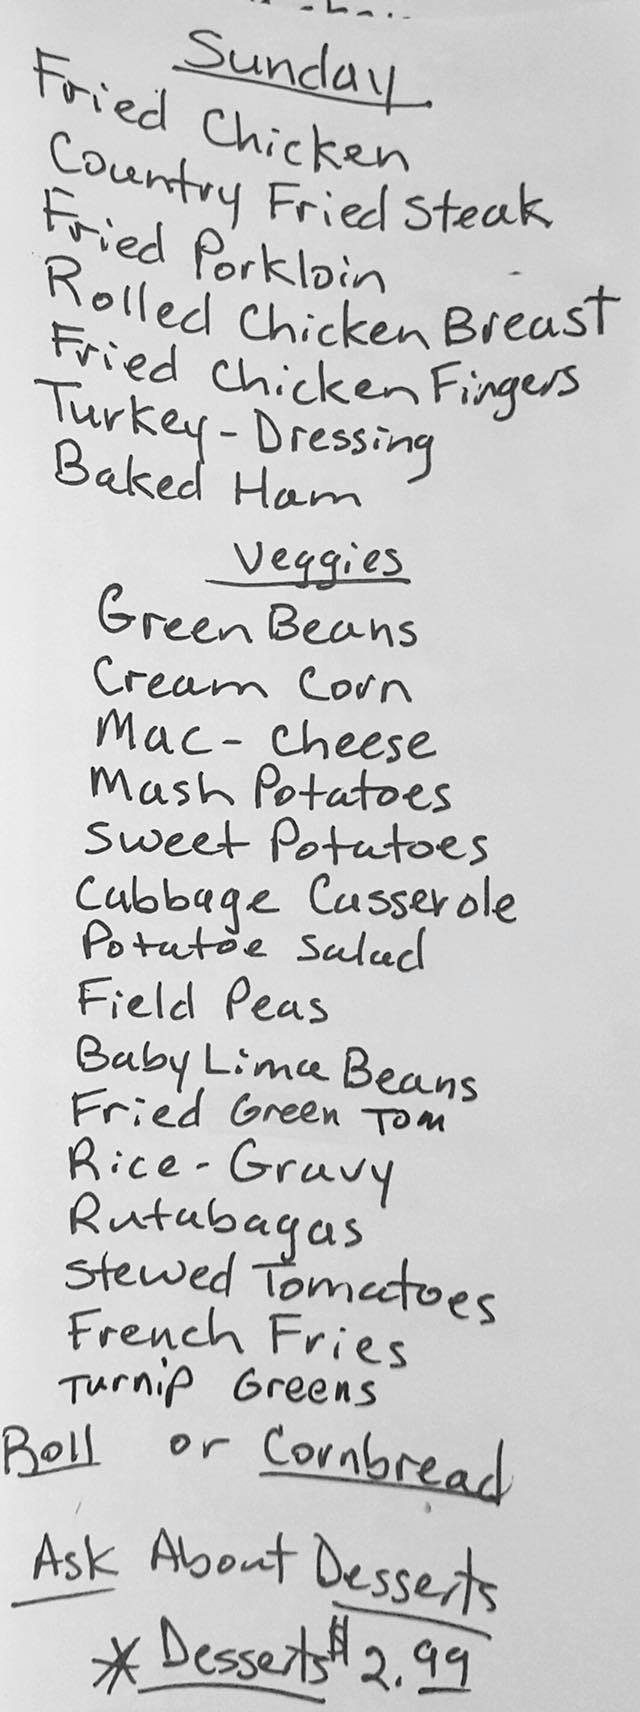 Sunday
Fried Chicken
Country Fried Steak
Fried Porkloin
Rolled Chicken Breast
Fried Chicken Fingers
Turkey - Dressing
Baked Ham
Veggies
Green Beans
Cream Corn
Mac - Cheese
Mash Potatoes
Sweet Potatoes
Cabbage Casserole
Potatoe Salad
Field Peas
Baby Lima Beans
Fried Green Tom
Rice - Gravy
Rutabagas
Stewed Tomatoes
French Fries
Turnip Greens
Roll or Cornbread
Ask About Desserts
* Desserts $2.99